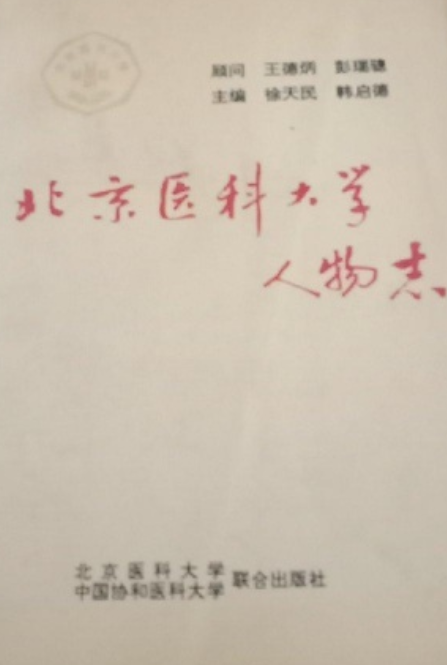 顾问 王德炳 彭瑞骢
主编 徐天民 韩启德
北京医科大学
人物志
北京医科大学
中国协和医科大学
联合出版社